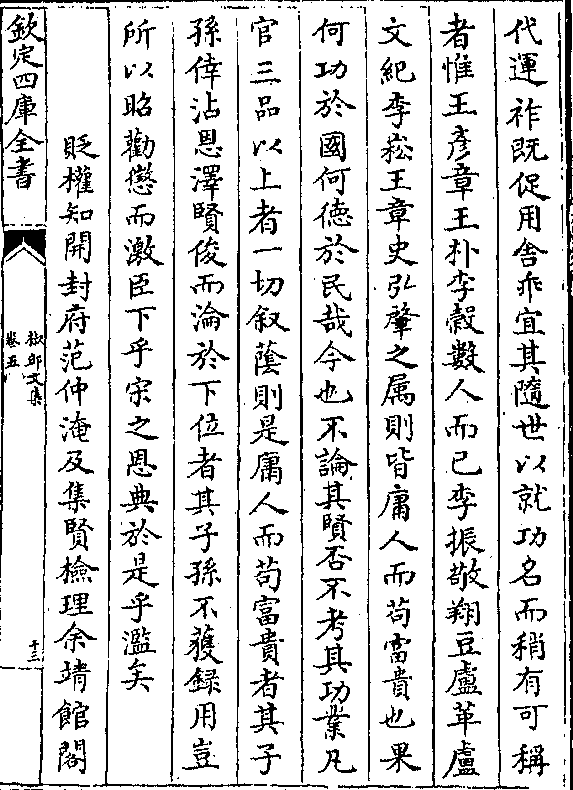 代運祚既促用舍乖宜其隨世以就功名而稍有可稱
者惟王彥章王朴李穀數人而已李振敬翔豆盧革盧
文紀李崧王章史弘肇之属則皆庸人而苟富貴也果
何功於國何德於民哉今也不論其賢否不考其功業凡
官三品以上者一切叙蔭則是庸人而苟富貴者其子
孫倖沾恩澤賢俊而淪於下位者其子孫不獲録用豈
所以昭勸懲而激臣下乎宋之恩典於是乎濫矣
貶權知開封府范仲淹及集賢檢理余靖館閣
欽定四庫全書
椒邱文集
卷五
十三